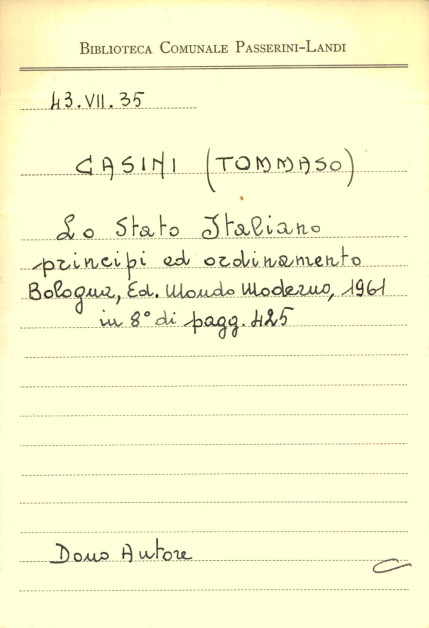 BIBLIOTECA COMUNALE PASSERINI-LANDI
43.VII.35
CASINI (TOMMASO)
Lo Stato Italiano
principi ed ordinamento
Bologna, Ed. Mondo Moderno, 1961
in 8° di pagg. 425
Dono Autore